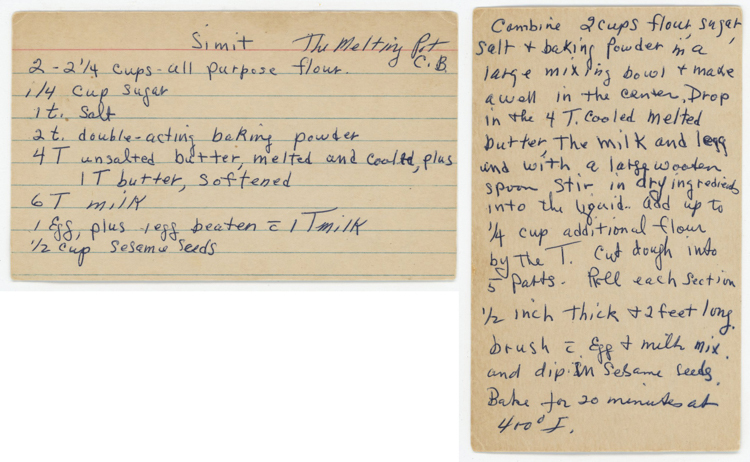 Simit The Melting Pot
C.B.
2 - 2 1/4 cups - all purpose flour.
1/4 cup sugar
1 t. salt
2 t. double-acting baking powder
4 T unsalted butter, melted and cooled, plus
1 T butter, softened
6 T milk
1 Egg, plus 1 egg beaten c̄ 1 T milk
1/2 cup sesame seeds
Combine 2 cups flour, sugar,
salt + baking powder in a
large mixing bowl + make
a well in the center. Drop
in the 4 T. cooled melted
butter, the milk and 1 egg
and with a large wooden
spoon stir in dry ingredients
into the liquid.. add up to
1/4 cup additional flour
by the T. Cut dough into
5 parts. Roll each section
1/2 inch thick + 2 feet long.
brush c̄ Egg + milk mix.
and dip in sesame seeds.
Bake for 20 minutes at
400° F.